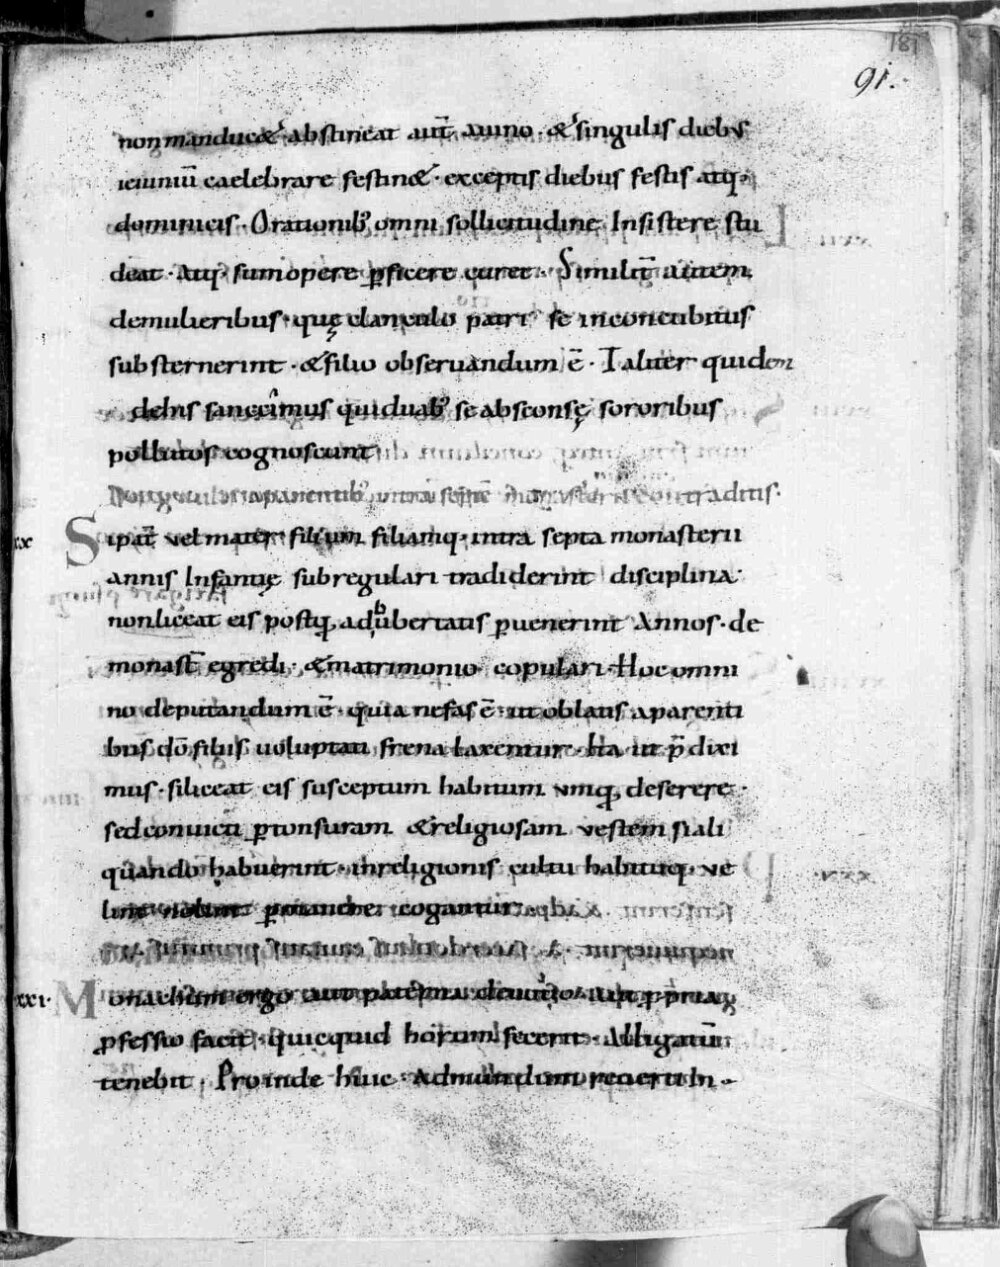 181
91.
non manduc& · abstineat aut̄ a uino · & singulis diebus
ieiuniū caelebrare festin& · exceptis diebus festis atq;
dominicis · Orationib; omni sollicitudine Insistere stu
deat · Atq; summopere ꝑficere curet · Similit̄ autem
demulieribus · quę clanculo patri se inconcubitus
substernerint · & filio obseruandum ē · Taliter quidem
delris sanccimus qui duab; se absconsę sororibus
pollutos cognoscunt
parentib; intra monasterii traditis ·
xx Sipat̄ vel mater filium filiamq; intra septa monasterii
annis Infantię sub regulari tradiderint disciplina
non liceat eis postq̄ ad pubertatis ꝑuenerint Annos · de
monast̄ egredi · & matrimonio copulari · Hoc omni
no deputandum ē · quia nefas ē · ut oblatis a parenti
bus dō filiis uoluptati frena laxentur · Ita ut p̄ dixi
mus · si liceat eis susceptum habitum vmq̄ deserere ·
sed conuicti ꝑ tonsuram & religiosam vestem si ali
quando habuerint · in religionis cultu habituq; ve
lint nolint ꝑmanere cogantur
xxi · Monachum ergo aut paterna deuotio · aut ꝓpria
ꝓfessio facit · quicquid horum fecerit · Alligatū
tenebit · Proinde huic Ad mundum reuerti In ·